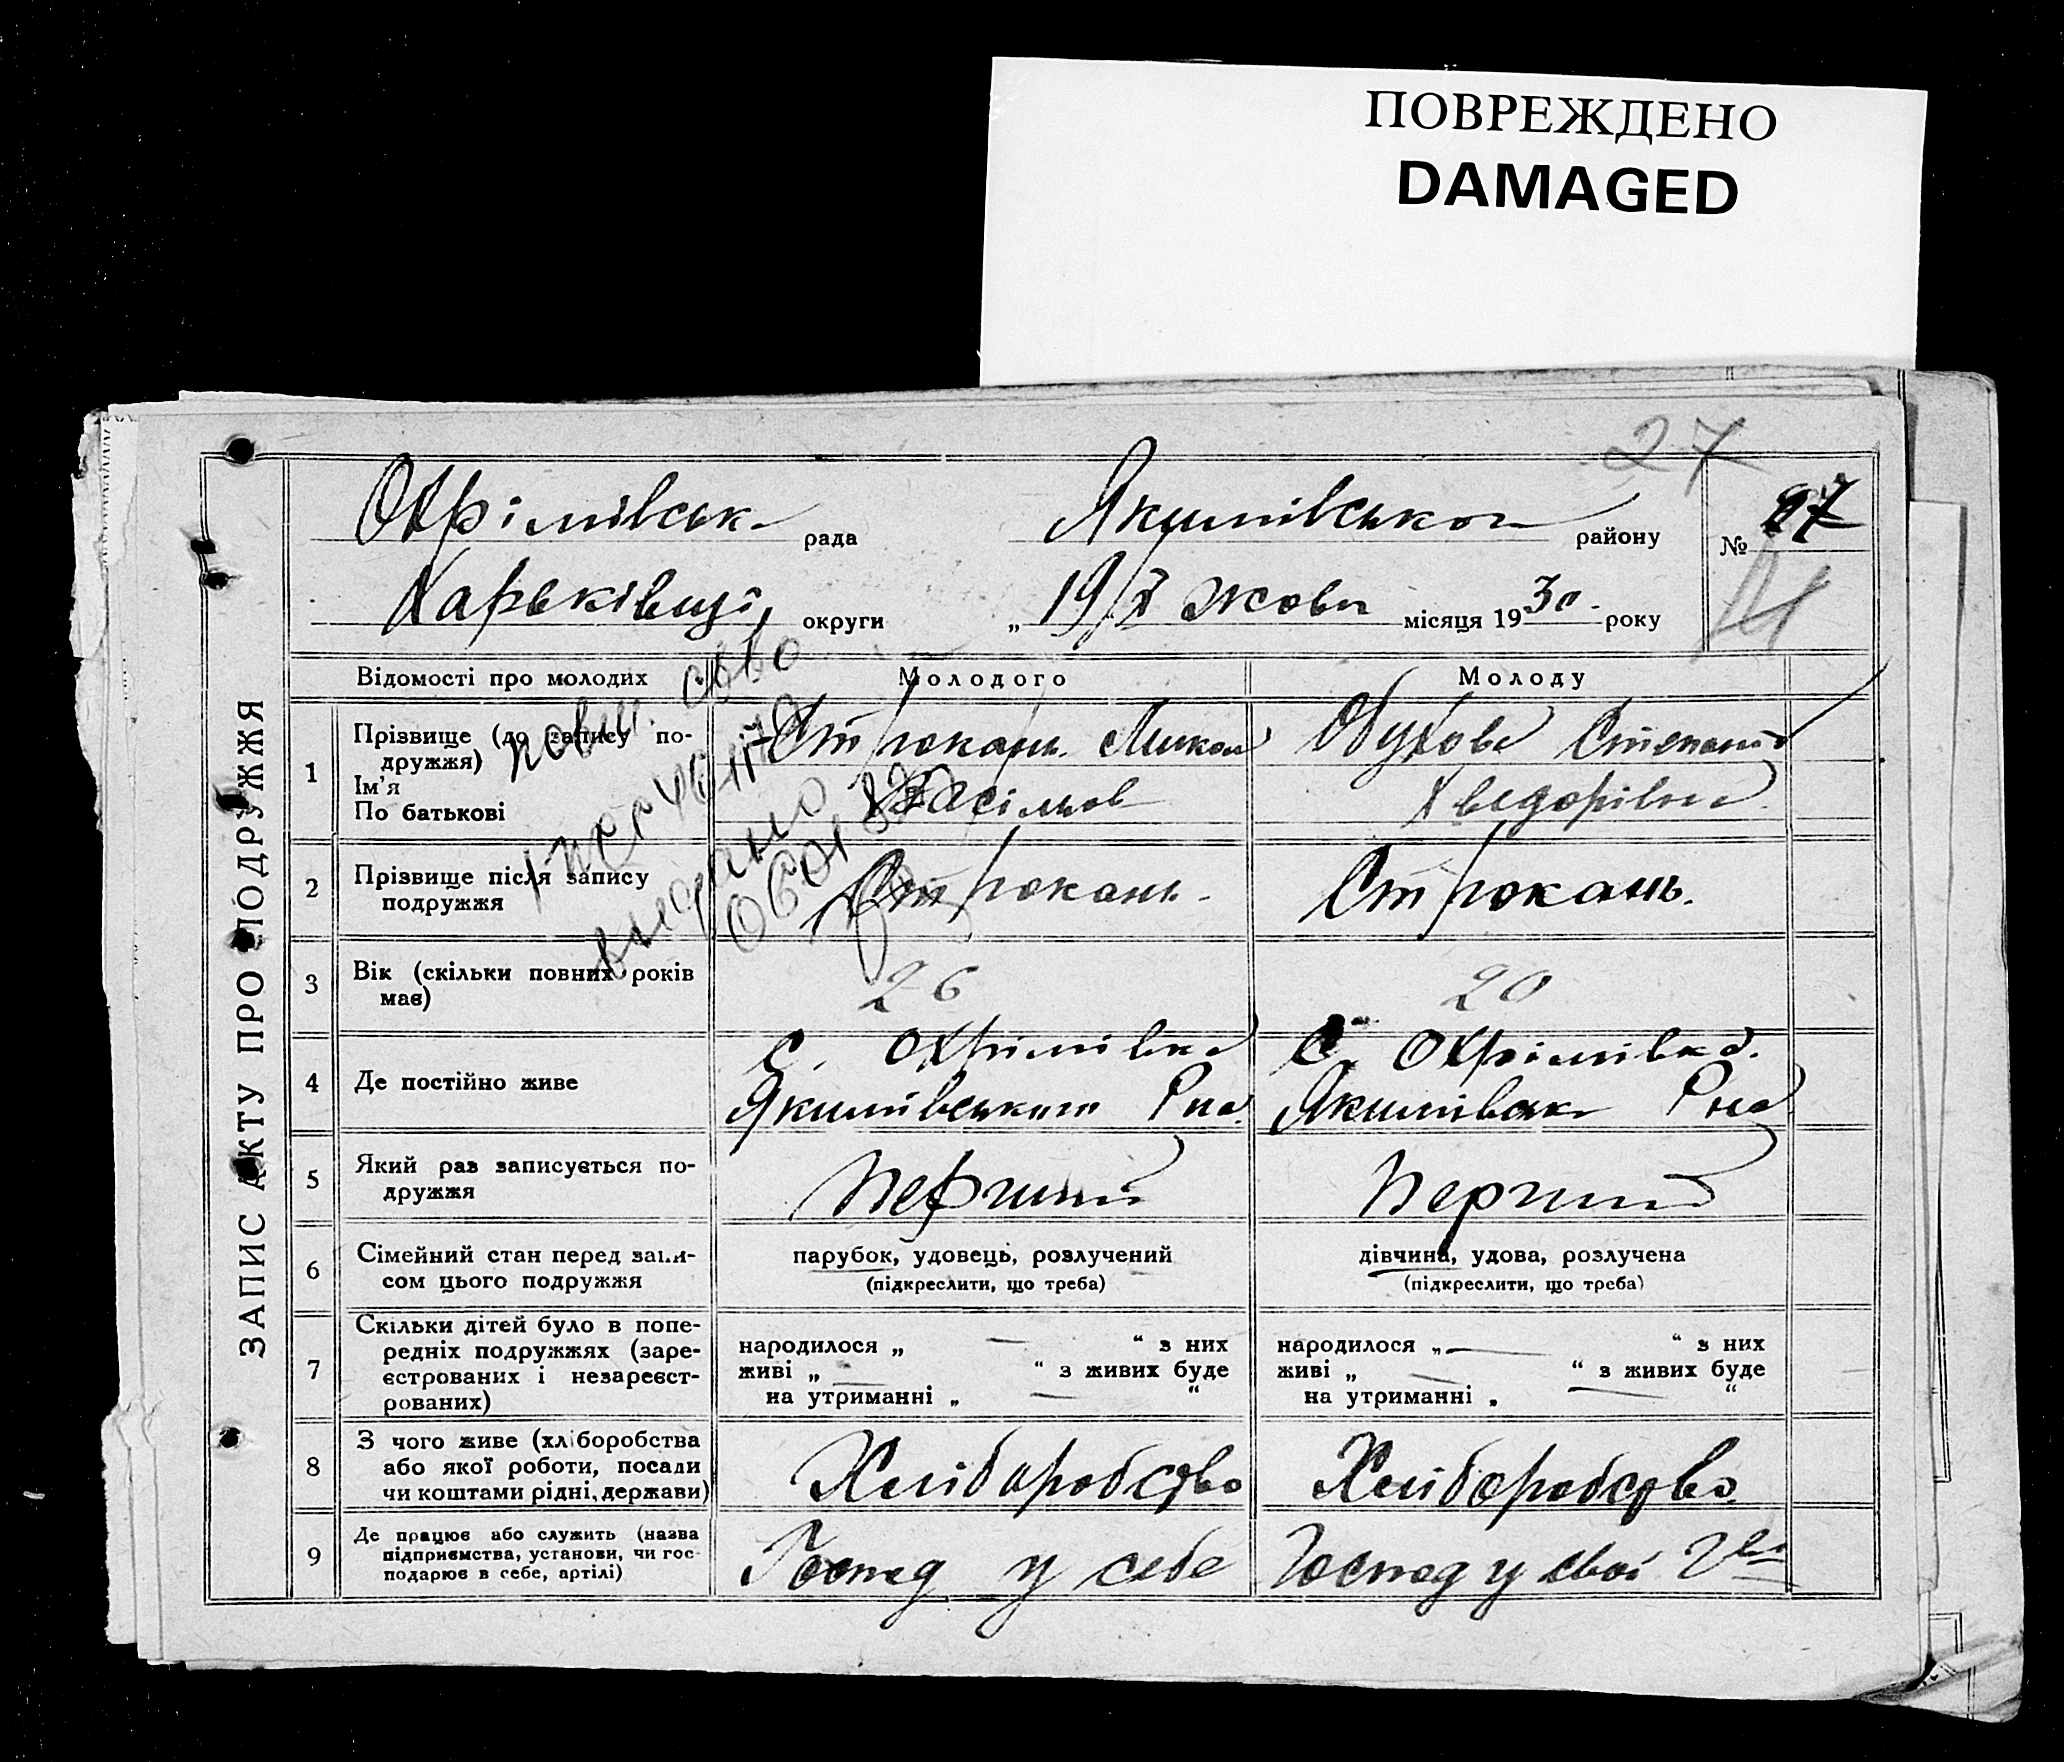 ПОВРЕЖДЕНО
DAMAGED
27
Охрімівськ рада Якимівського району № 27
Харьківщ округи „ 19/X жовт місяця 1930 року
ЗАПИС АКТУ ПРО ПОДРУЖЖЯ
Відомості про молодих Молодого Молоду
1 Прізвище (до запису по-
дружжя)
Ім'я
По батькові
Строкань Микол
Васільов
Обухова Степанид
Хведорівна
повт. свво
видано
2 Прізвище після запису
подружжя
Строкань. Строкань.
3 Вік (скільки повних років
має)
26 20
4 Де постійно живе
с. Охрімівка
Якимівського Р на
С. Охрімівка.
Якимівськ Р на
5 Який раз записується по-
дружжя
Перший Перший
6 Сімейний стан перед запи-
сом цього подружжя
парубок, удовець, розлучений
(підкреслити, що треба)
дівчина, удова, розлучена
(підкреслити, що треба)
7 Скільки дітей було в попе-
редніх подружжях (заре-
єстрованих і незареєст-
рованих)
народилося „ — “ з них
живі „ — “ з живих буде
на утриманні „ — “
народилося „ — “ з них
живі „ — “ з живих буде
на утриманні „ — “
8 З чого живе (хліборобства
або якої роботи, посади
чи коштами рідні, держави)
Хліборобство Хліборобство
9 Де працює або служить (назва
підприємства, установи, чи гос-
подарює в себе, артілі)
Господ у себе Господ у свої